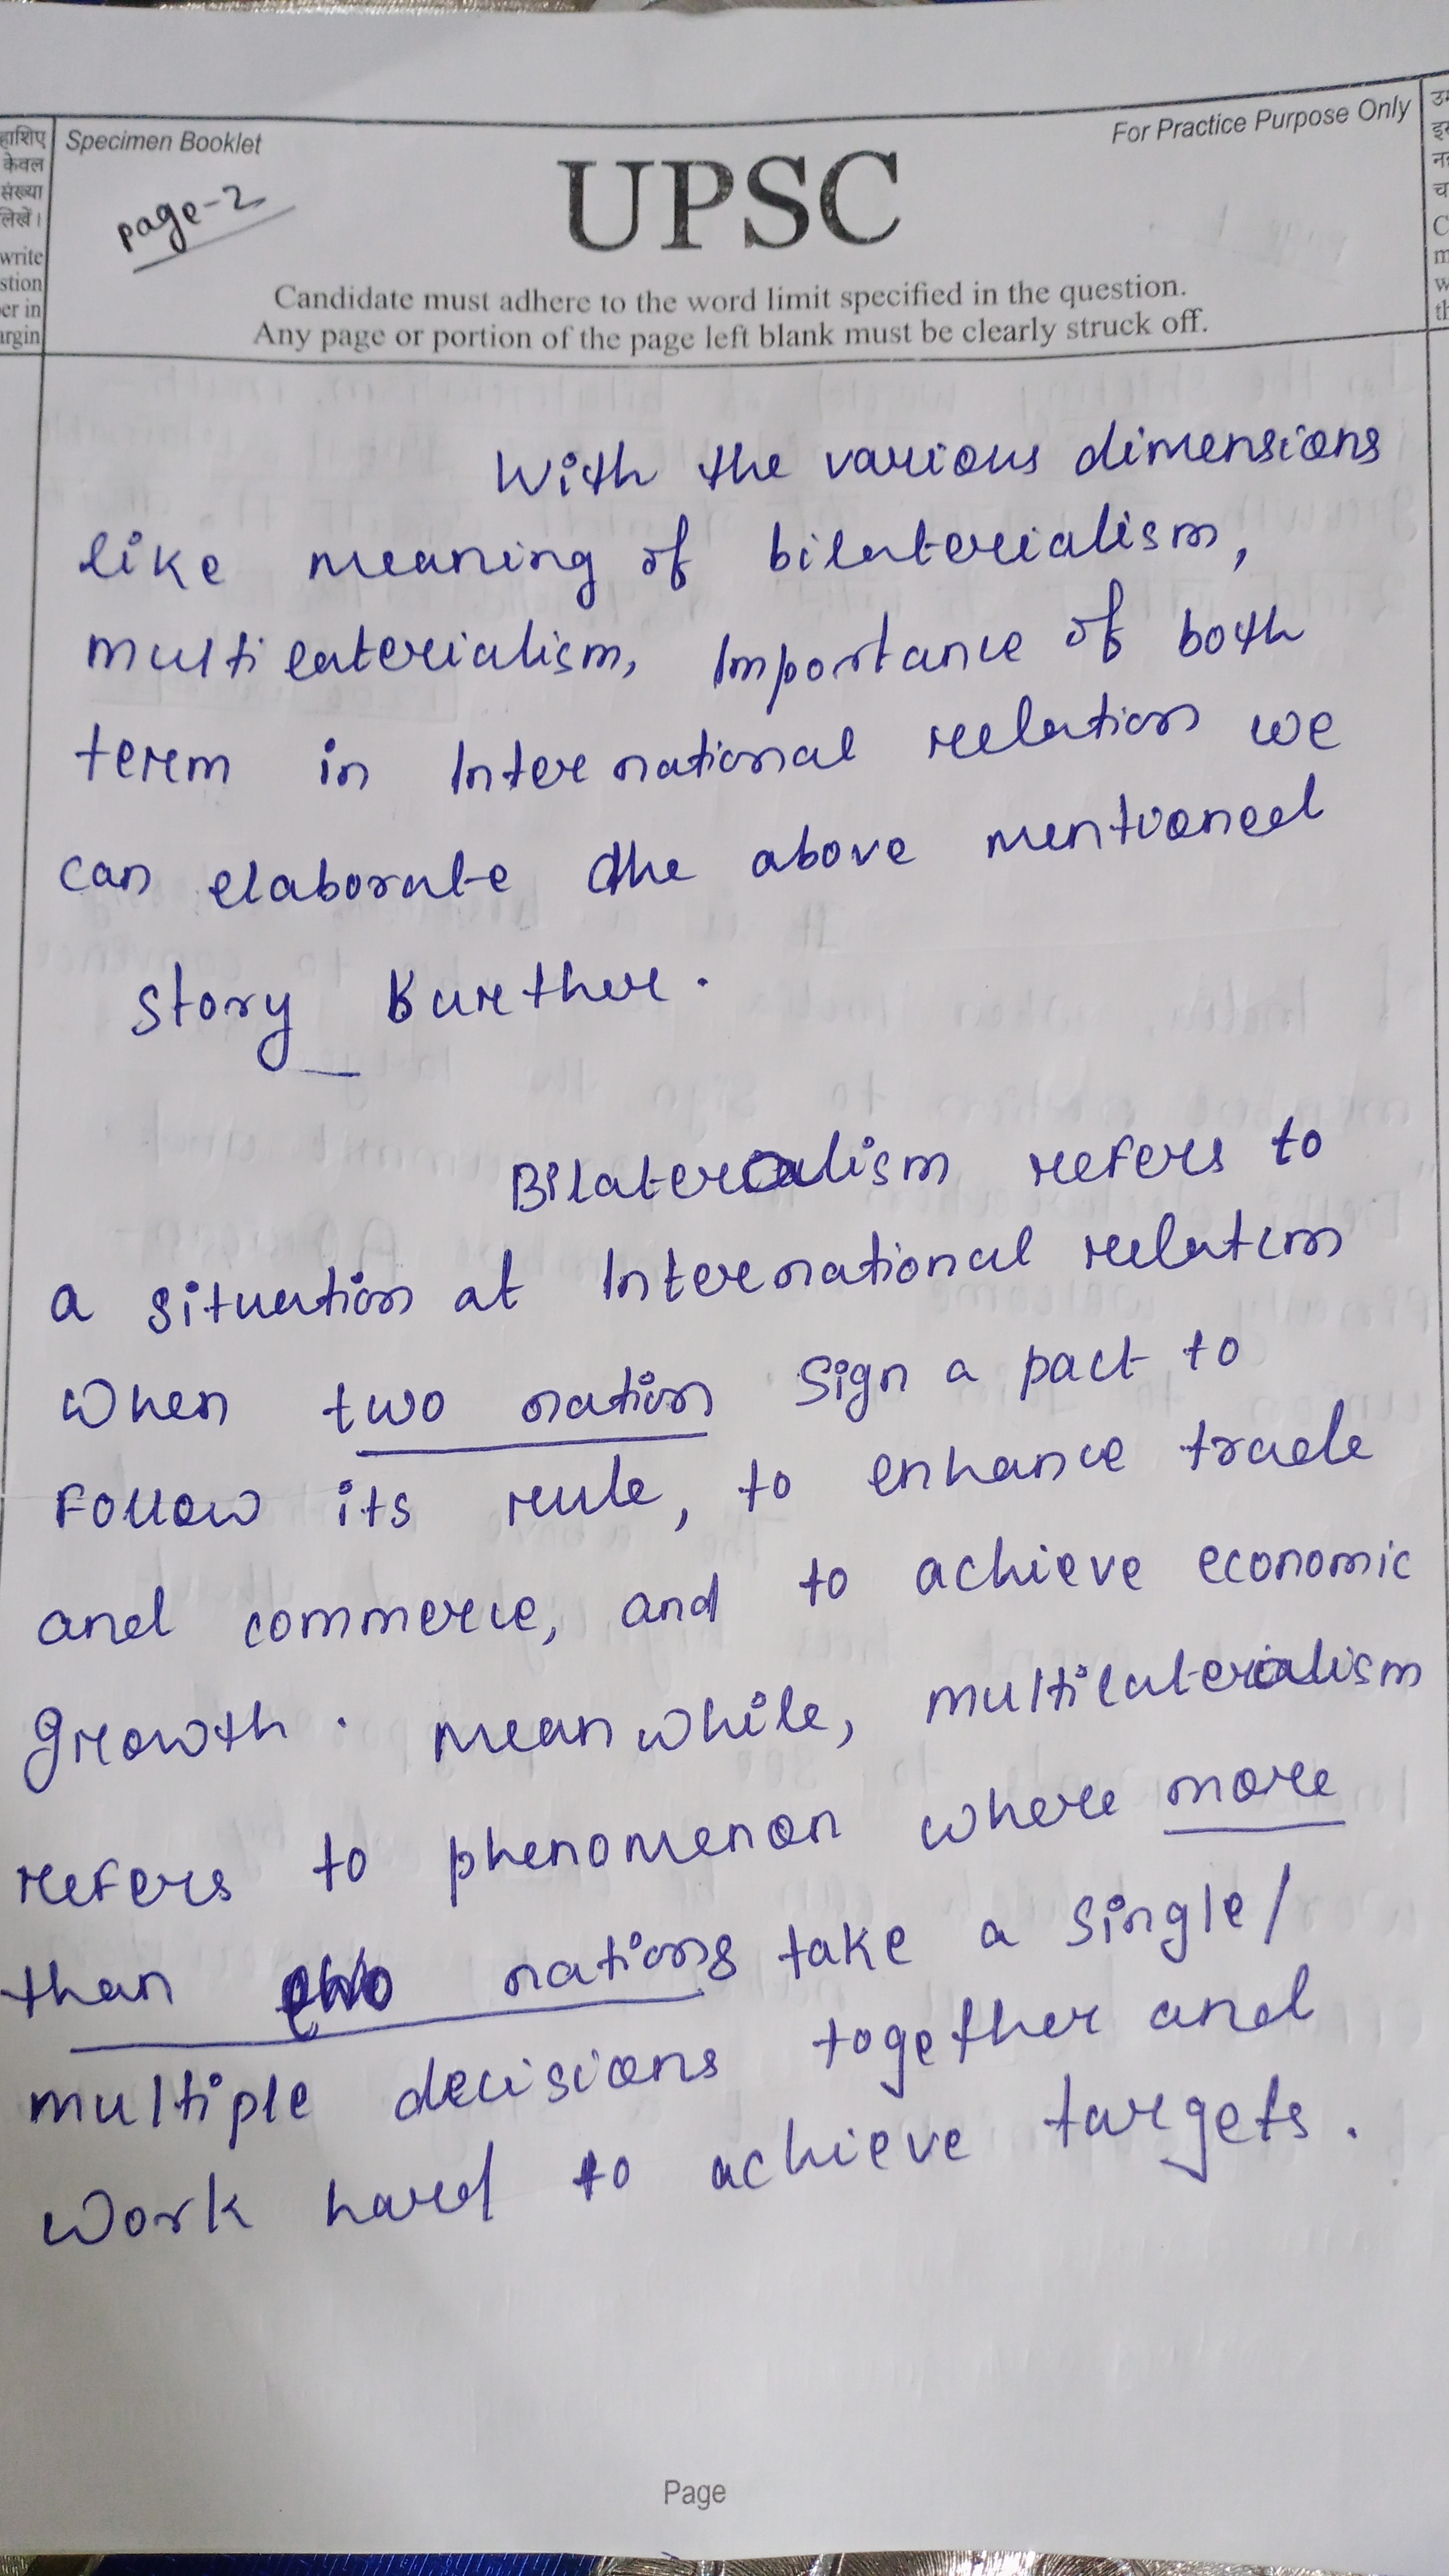 हाशिए
केवल
संख्या
लिखें।
write
stion
er in
argin
Specimen Booklet
For Practice Purpose Only
page-2
UPSC
Candidate must adhere to the word limit specified in the question.
Any page or portion of the page left blank must be clearly struck off.
With the various dimensions
like meaning of bilaterialism,
multilaterialism, Importance of both
term in International relation we
can elaborate the above mentioned
story further.
Bilateralism refers to
a situation at International relation
when two nation sign a pact to
follow its rule, to enhance trade
and commerce, and to achieve economic
growth. meanwhile, multilateralism
refers to phenomenon where more
than two nations take a single/
multiple decisions together and
work hard to achieve targets.
Page